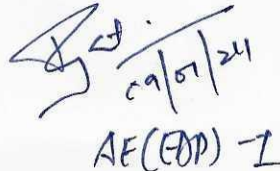 09/07/24
AE(EDP) -I